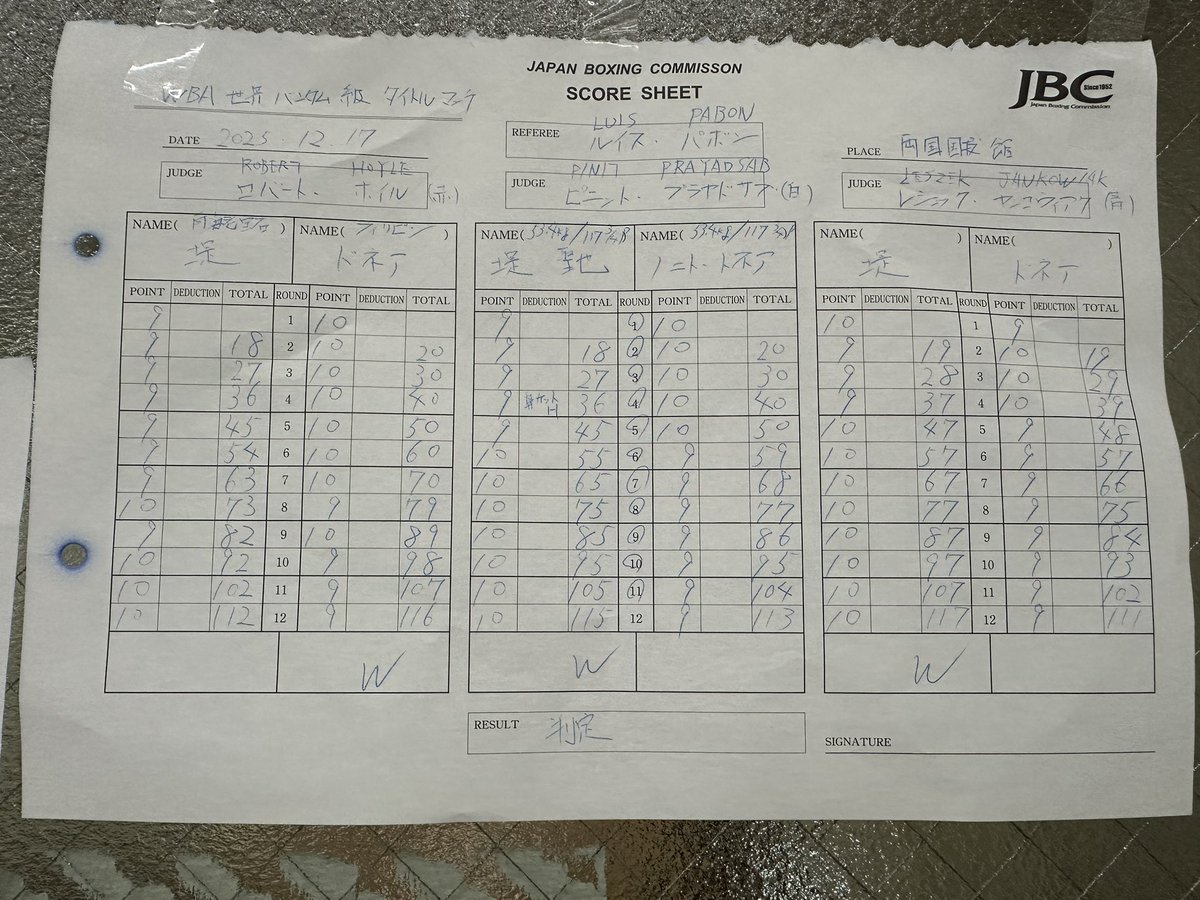 JAPAN BOXING COMMISSON
SCORE SHEET
JBC Since1952
Japan Boxing Commission
WBA 世界 バンタム 級 タイトル マッチ
DATE 2025.12.17
REFEREE LUIS PABON
ルイス・パボン
PLACE 両国国技館
JUDGE ROBERT HOYLE
ロバート・ホイル (赤)
JUDGE PINIT PRAYADSAB
ピニット・プラヤドサブ (白)
JUDGE LESZEK JANKOWIAK
レシェック・ヤンコヴィアク (青)
NAME( 角海老宝石 ) NAME( フィリピン ) NAME( 53.4kg/117 3/4P NAME( 53.4kg/117 3/4P NAME( ) NAME( )
堤 ドネア 堤 聖也 ノニト・ドネア 堤 ドネア
POINT DEDUCTION TOTAL ROUND POINT DEDUCTION TOTAL POINT DEDUCTION TOTAL ROUND POINT DEDUCTION TOTAL POINT DEDUCTION TOTAL ROUND POINT DEDUCTION TOTAL
9 1 10 9 1 10 10 1 9
9 18 2 10 20 9 18 2 10 20 9 19 2 10 19
9 27 3 10 30 9 27 3 10 30 9 28 3 10 29
9 36 4 10 40 9 36 4 10 40 9 37 4 10 39
9 45 5 10 50 9 45 5 10 50 10 47 5 9 48
9 54 6 10 60 10 55 6 9 59 10 57 6 9 57
9 63 7 10 70 10 65 7 9 68 10 67 7 9 66
10 73 8 9 79 10 75 8 9 77 10 77 8 9 75
9 82 9 10 89 10 85 9 9 86 10 87 9 9 84
10 92 10 9 98 10 95 10 9 95 10 97 10 9 93
10 102 11 9 107 10 105 11 9 104 10 107 11 9 102
10 112 12 9 116 10 115 12 9 113 10 117 12 9 111
W W W
RESULT 判定
SIGNATURE